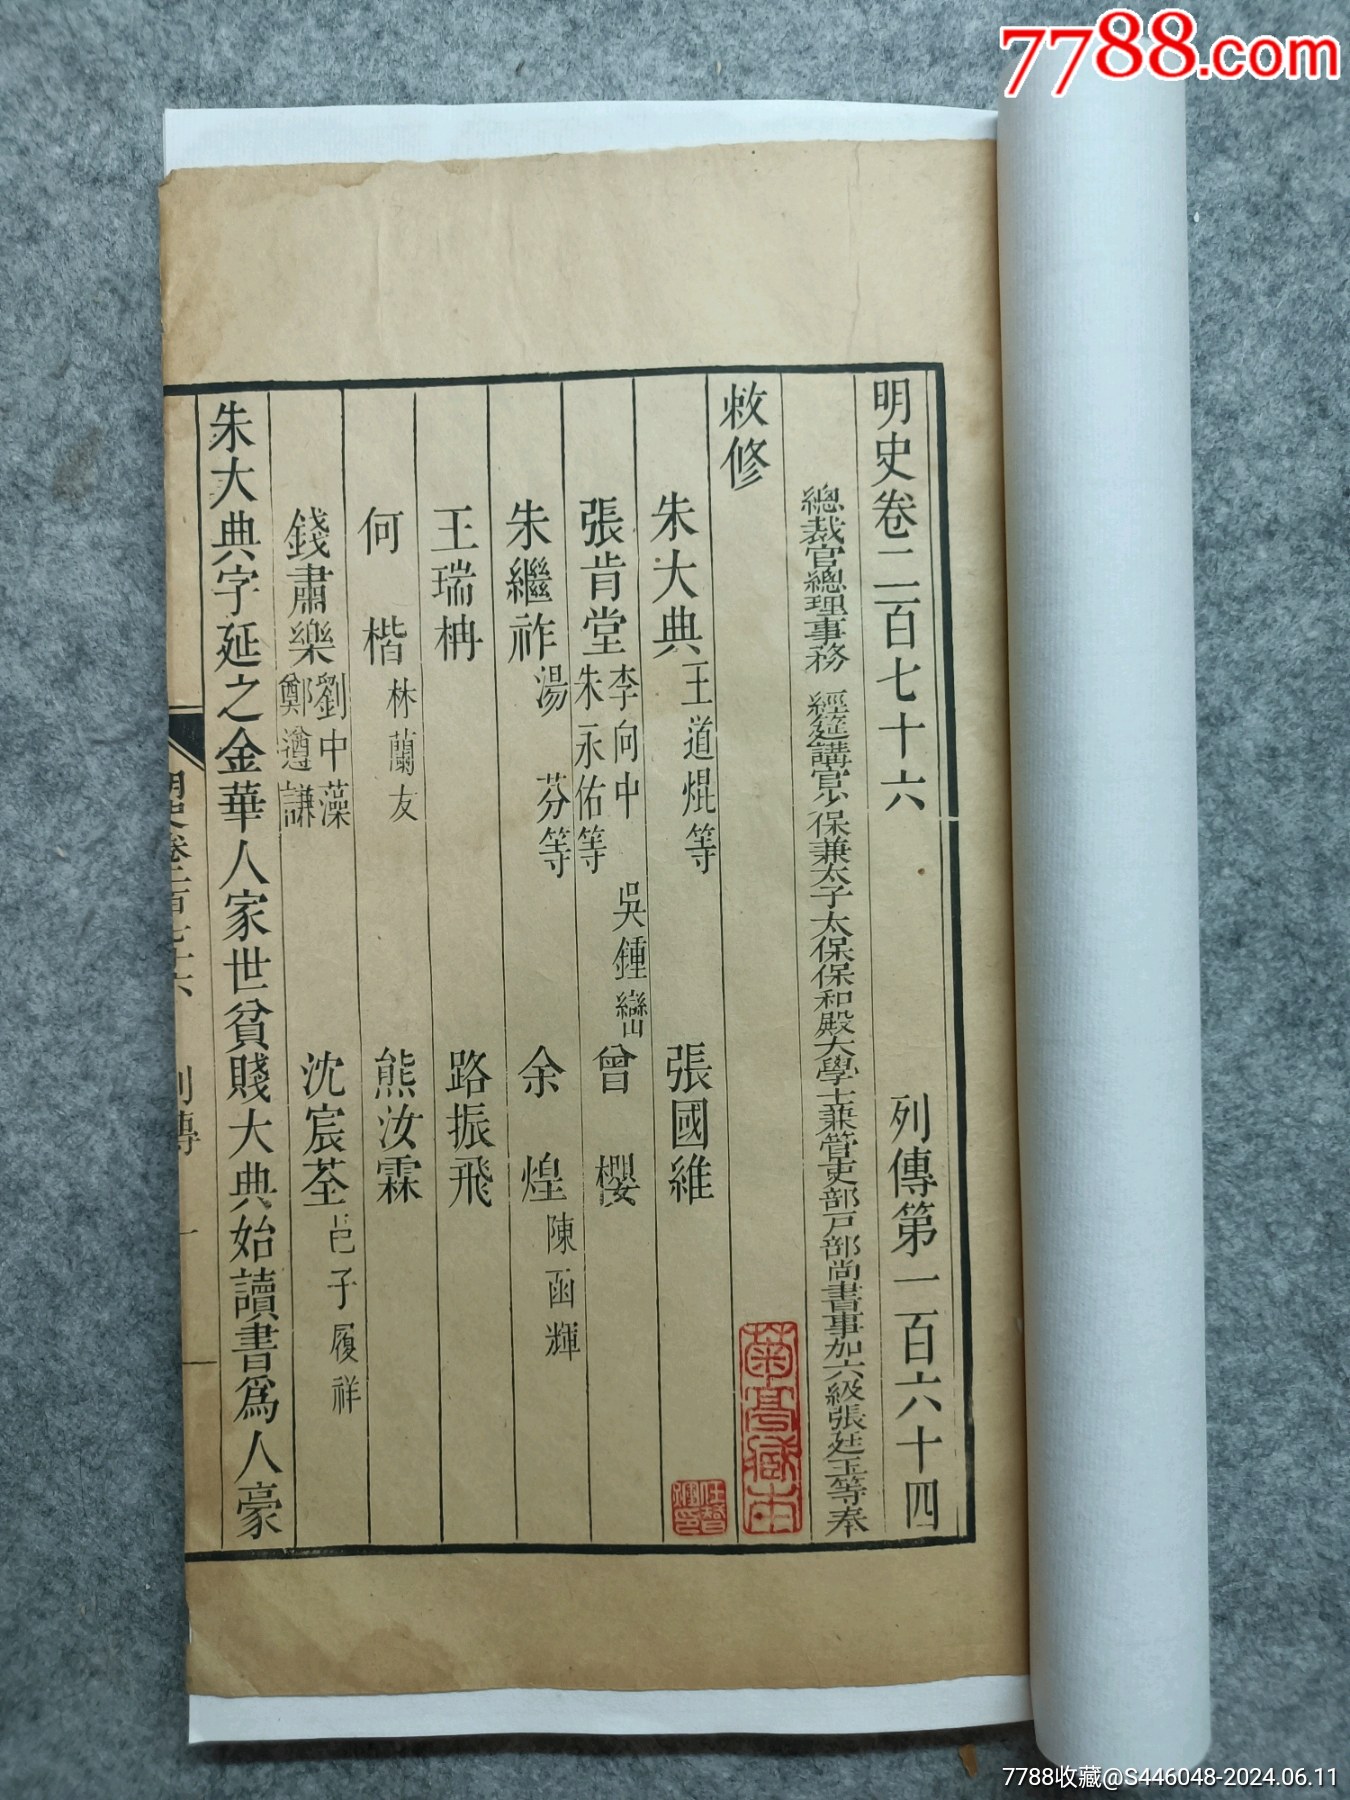 7788.com
明史卷二百七十六 列傳第一百六十四
總裁官總理事務 經筵講官少保兼太子太保保和殿大學士兼管吏部戸部尚書事加六級張廷玉等奉
敕修
朱大典 王道焜等 張國維
張肯堂 李向中 朱永佑等 吳鍾巒 曾 櫻
朱繼祚 湯 芬等 余 煌 陳函輝
王瑞栴 路振飛
何 楷 林蘭友 熊汝霖
錢肅樂 劉中藻 鄭遵謙 沈宸荃 邑子履祥
朱大典字延之金華人家世貧賤大典始讀書爲人豪
明史卷二百七十六 列傳 一
菊亭藏本
7788收藏@S446048-2024.06.11